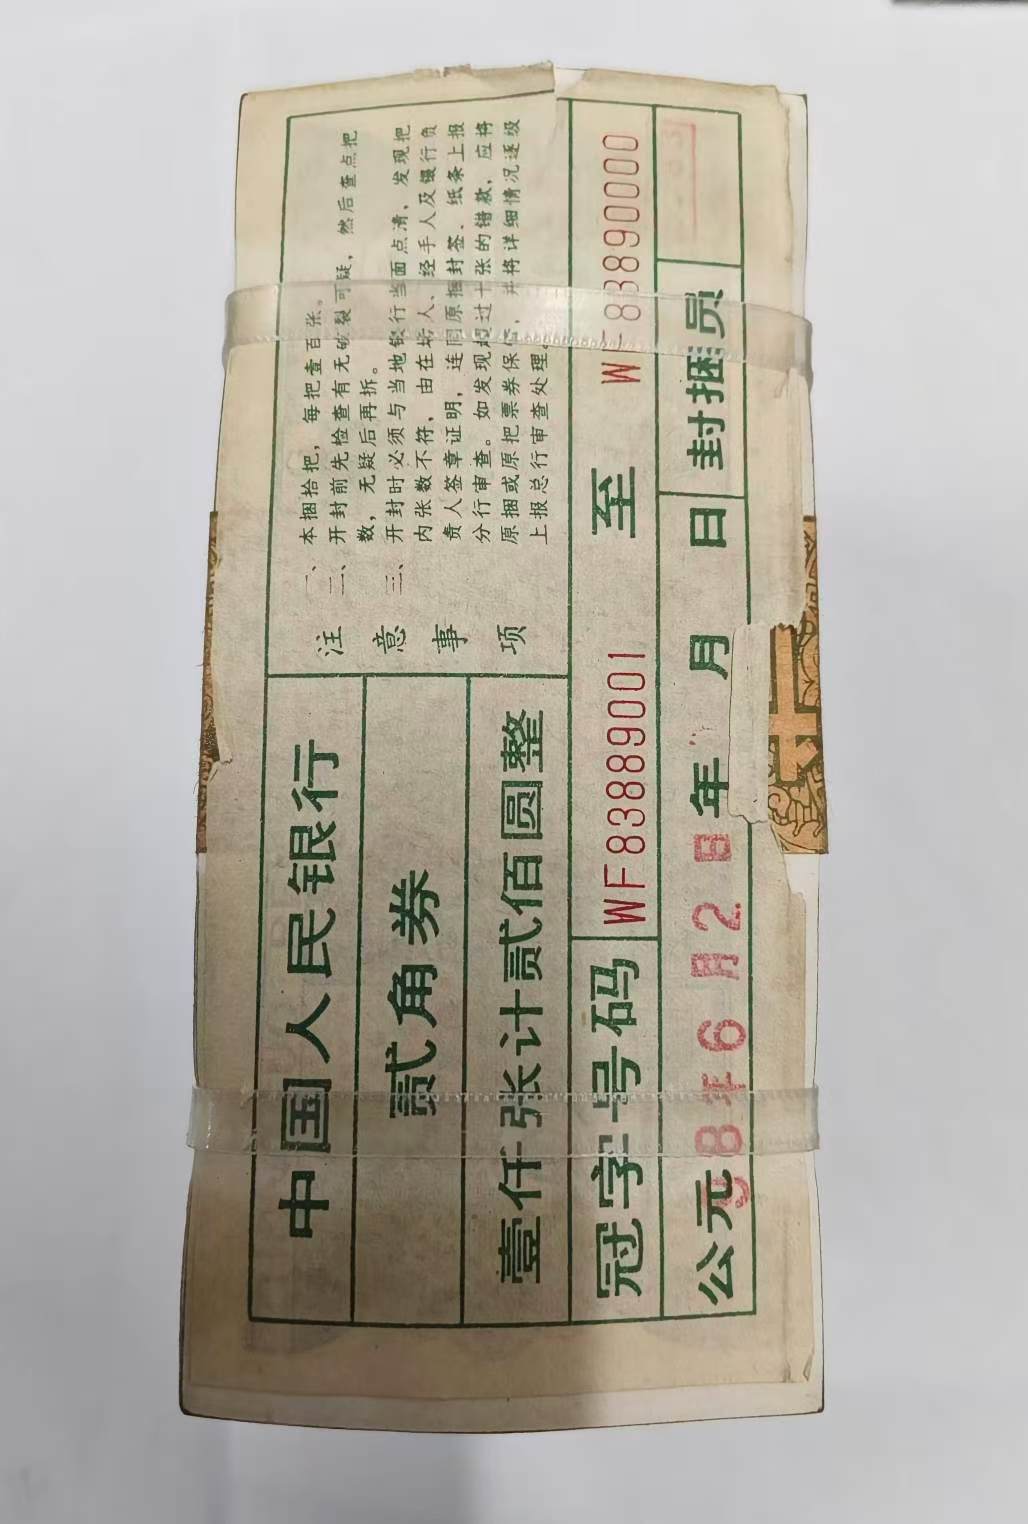 中国人民银行
贰角券
壹仟张计贰佰圆整
注意事项
一、本捆拾把，每把壹百张。
二、开封前先检查有无破裂可疑，然后查点把
数，无疑后再拆。
三、开封时必须与当地银行当面点清，发现把
内张数不符，由在场人、经手人及银行负
责人签章证明，连同原捆封签、纸条上报
分行审查。如发现超过十张的错款，应将
原捆或原把票券保，并将详细情况逐级
上报总行审查处理。
冠字号码 WF83889001 至 WF83890000
公元 年 月 日 封捆员
98年6月2日